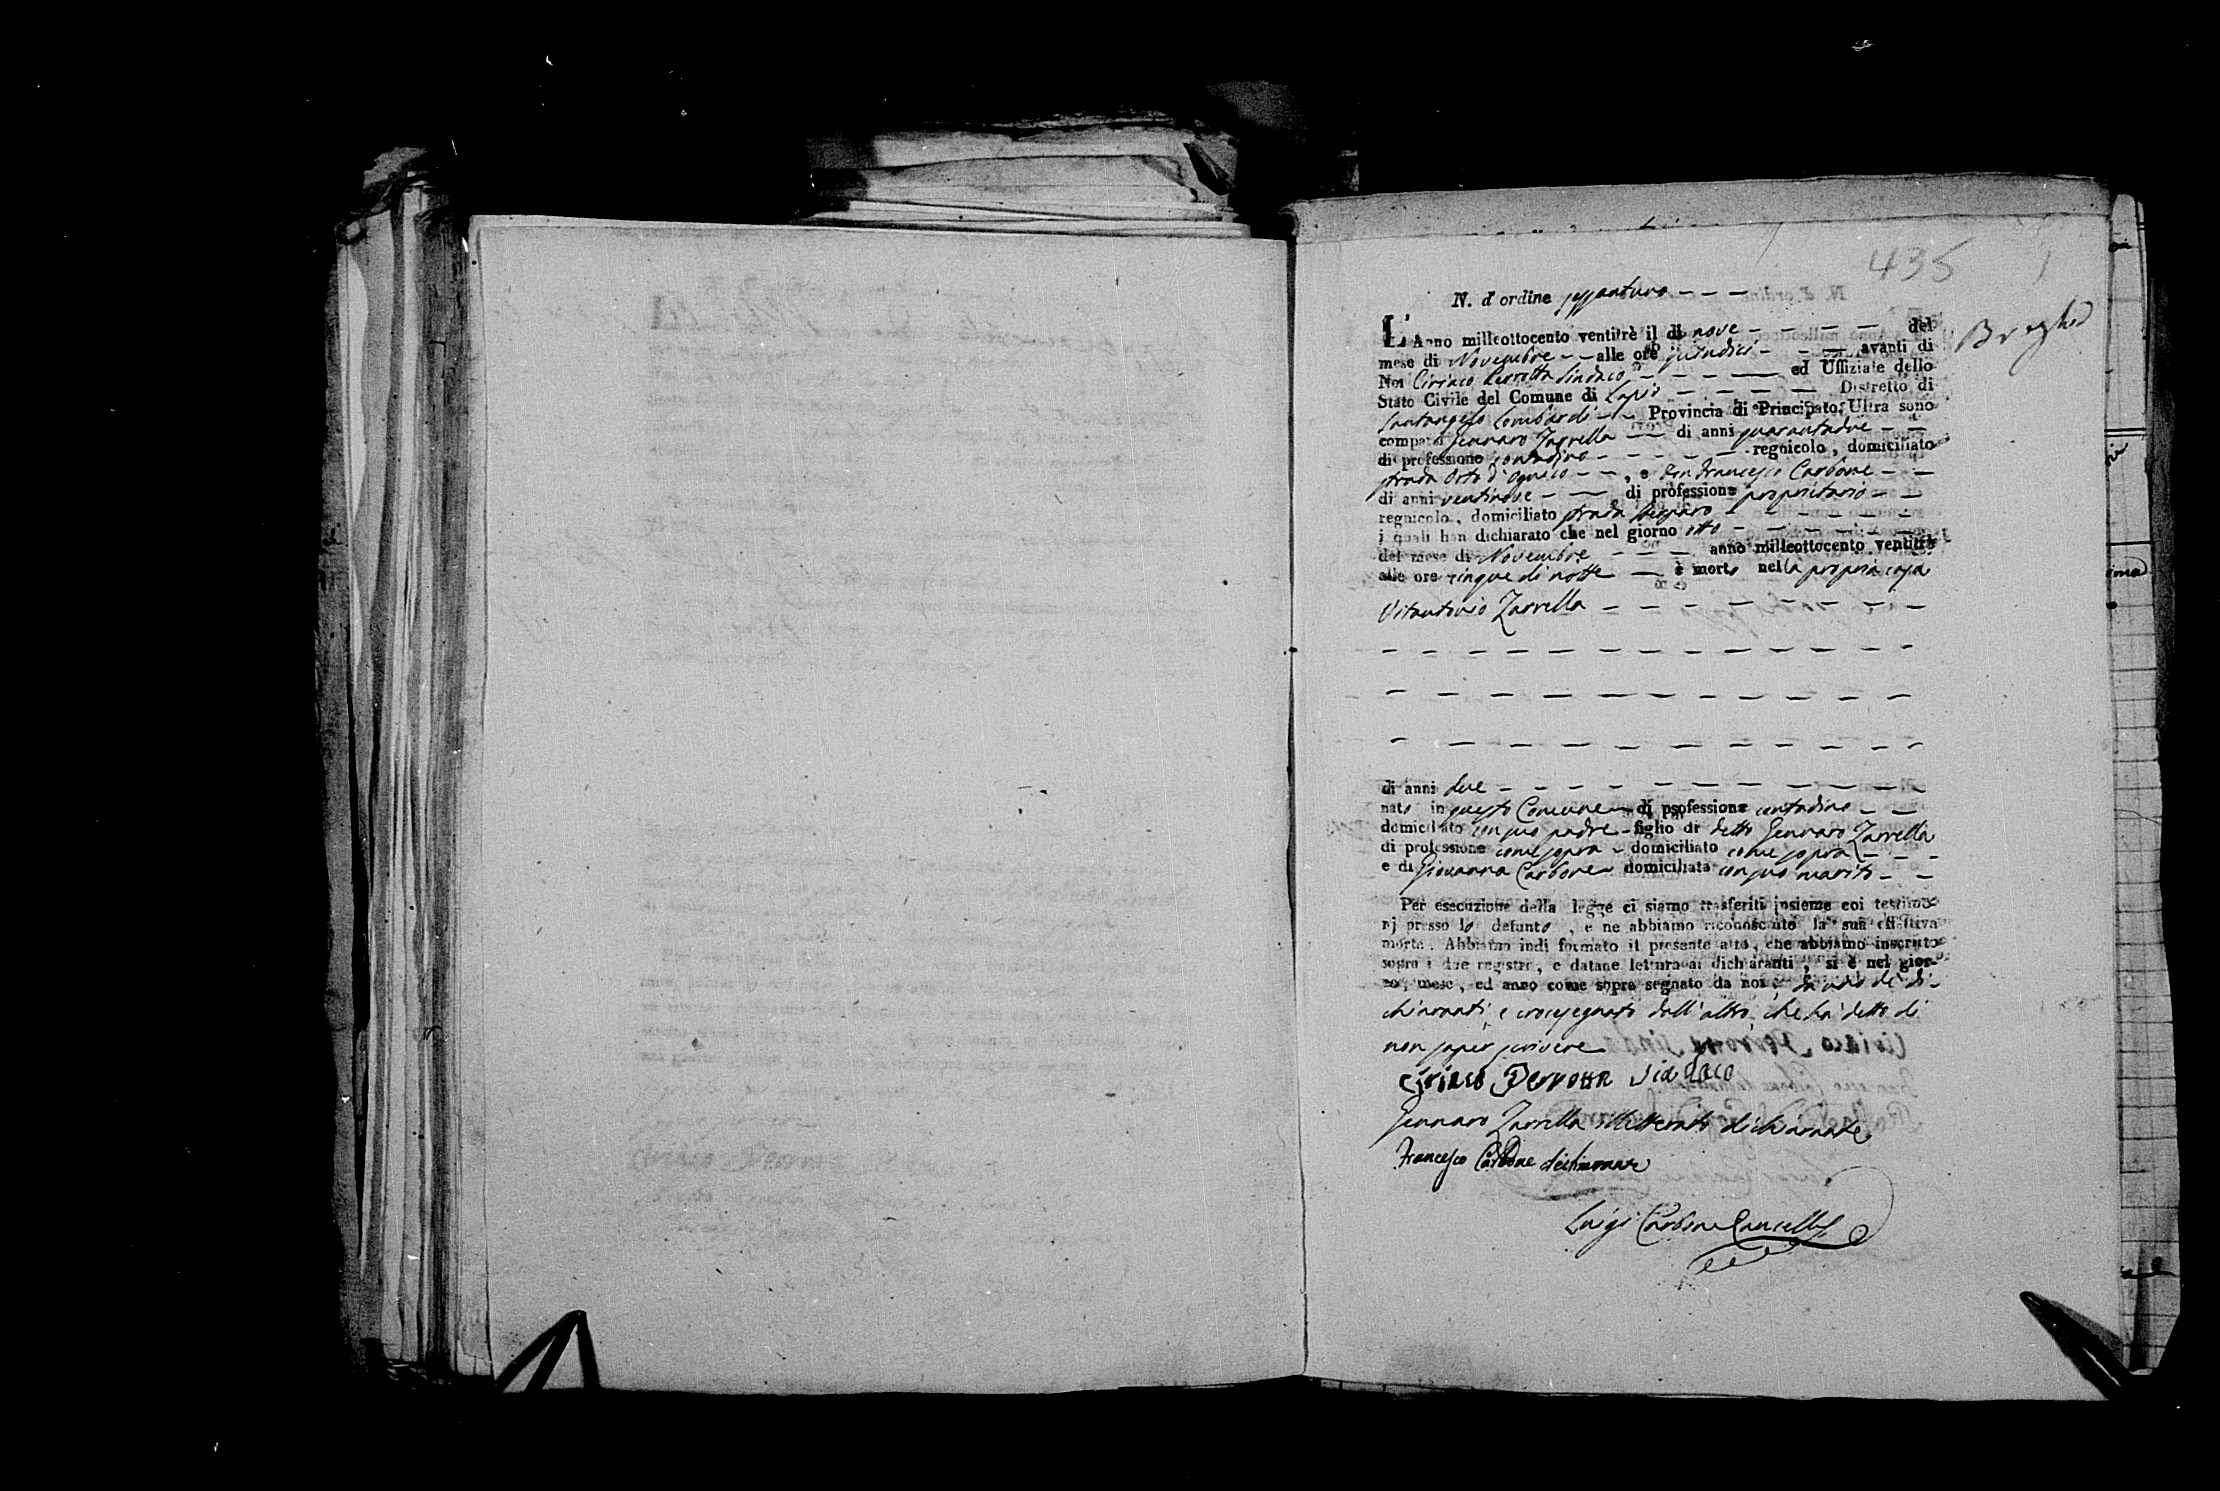 435
N. d'ordine sessantuno
Breglio
L'Anno milleottocento ventitrè il dì nove del
mese di Novembre alle ore quindici avanti di
Noi Ciriaco Perrotta Sindaco ed Uffiziale dello
Stato Civile del Comune di Lapio Distretto di
Santangelo Lombardi Provincia di Principato Ultra sono
comparsi Gennaro Zarrella di anni quarantadue
di professione contadino regnicolo, domiciliato
strada Orto d'Ognico, e Don Francesco Carbone
di anni ventinove di professione proprietario
regnicolo, domiciliato strada
i quali han dichiarato che nel giorno otto
del mese di Novembre anno milleottocento ventitrè
alle ore cinque di notte è morto nella propria casa
Vitantonio Zarrella
di anni due
nato in questo Comune di professione contadino
domiciliato con suo padre figlio di detto Gennaro Zarrella
di professione come sopra domiciliato come sopra
e di Giovanna Carbone domiciliata con suo marito
Per esecuzione della legge ci siamo trasferiti insieme coi testimo-
nj presso lo defunto, e ne abbiamo riconosciuto la sua effettiva
morte. Abbiamo indi formato il presente atto, che abbiamo inscritto
sopra i due registri, e datane lettura ai dichiaranti, si è nel gior-
no, mese, ed anno come sopra segnato da noi, da uno de' di-
chiaranti, e crocesegnato dall'altro, che ha detto di
non saper scrivere
Ciriaco Perrotta Sindaco
Gennaro Zarrella illetterato dichiarante
Francesco Carbone dichiarante
Luigi Carbone Cancell